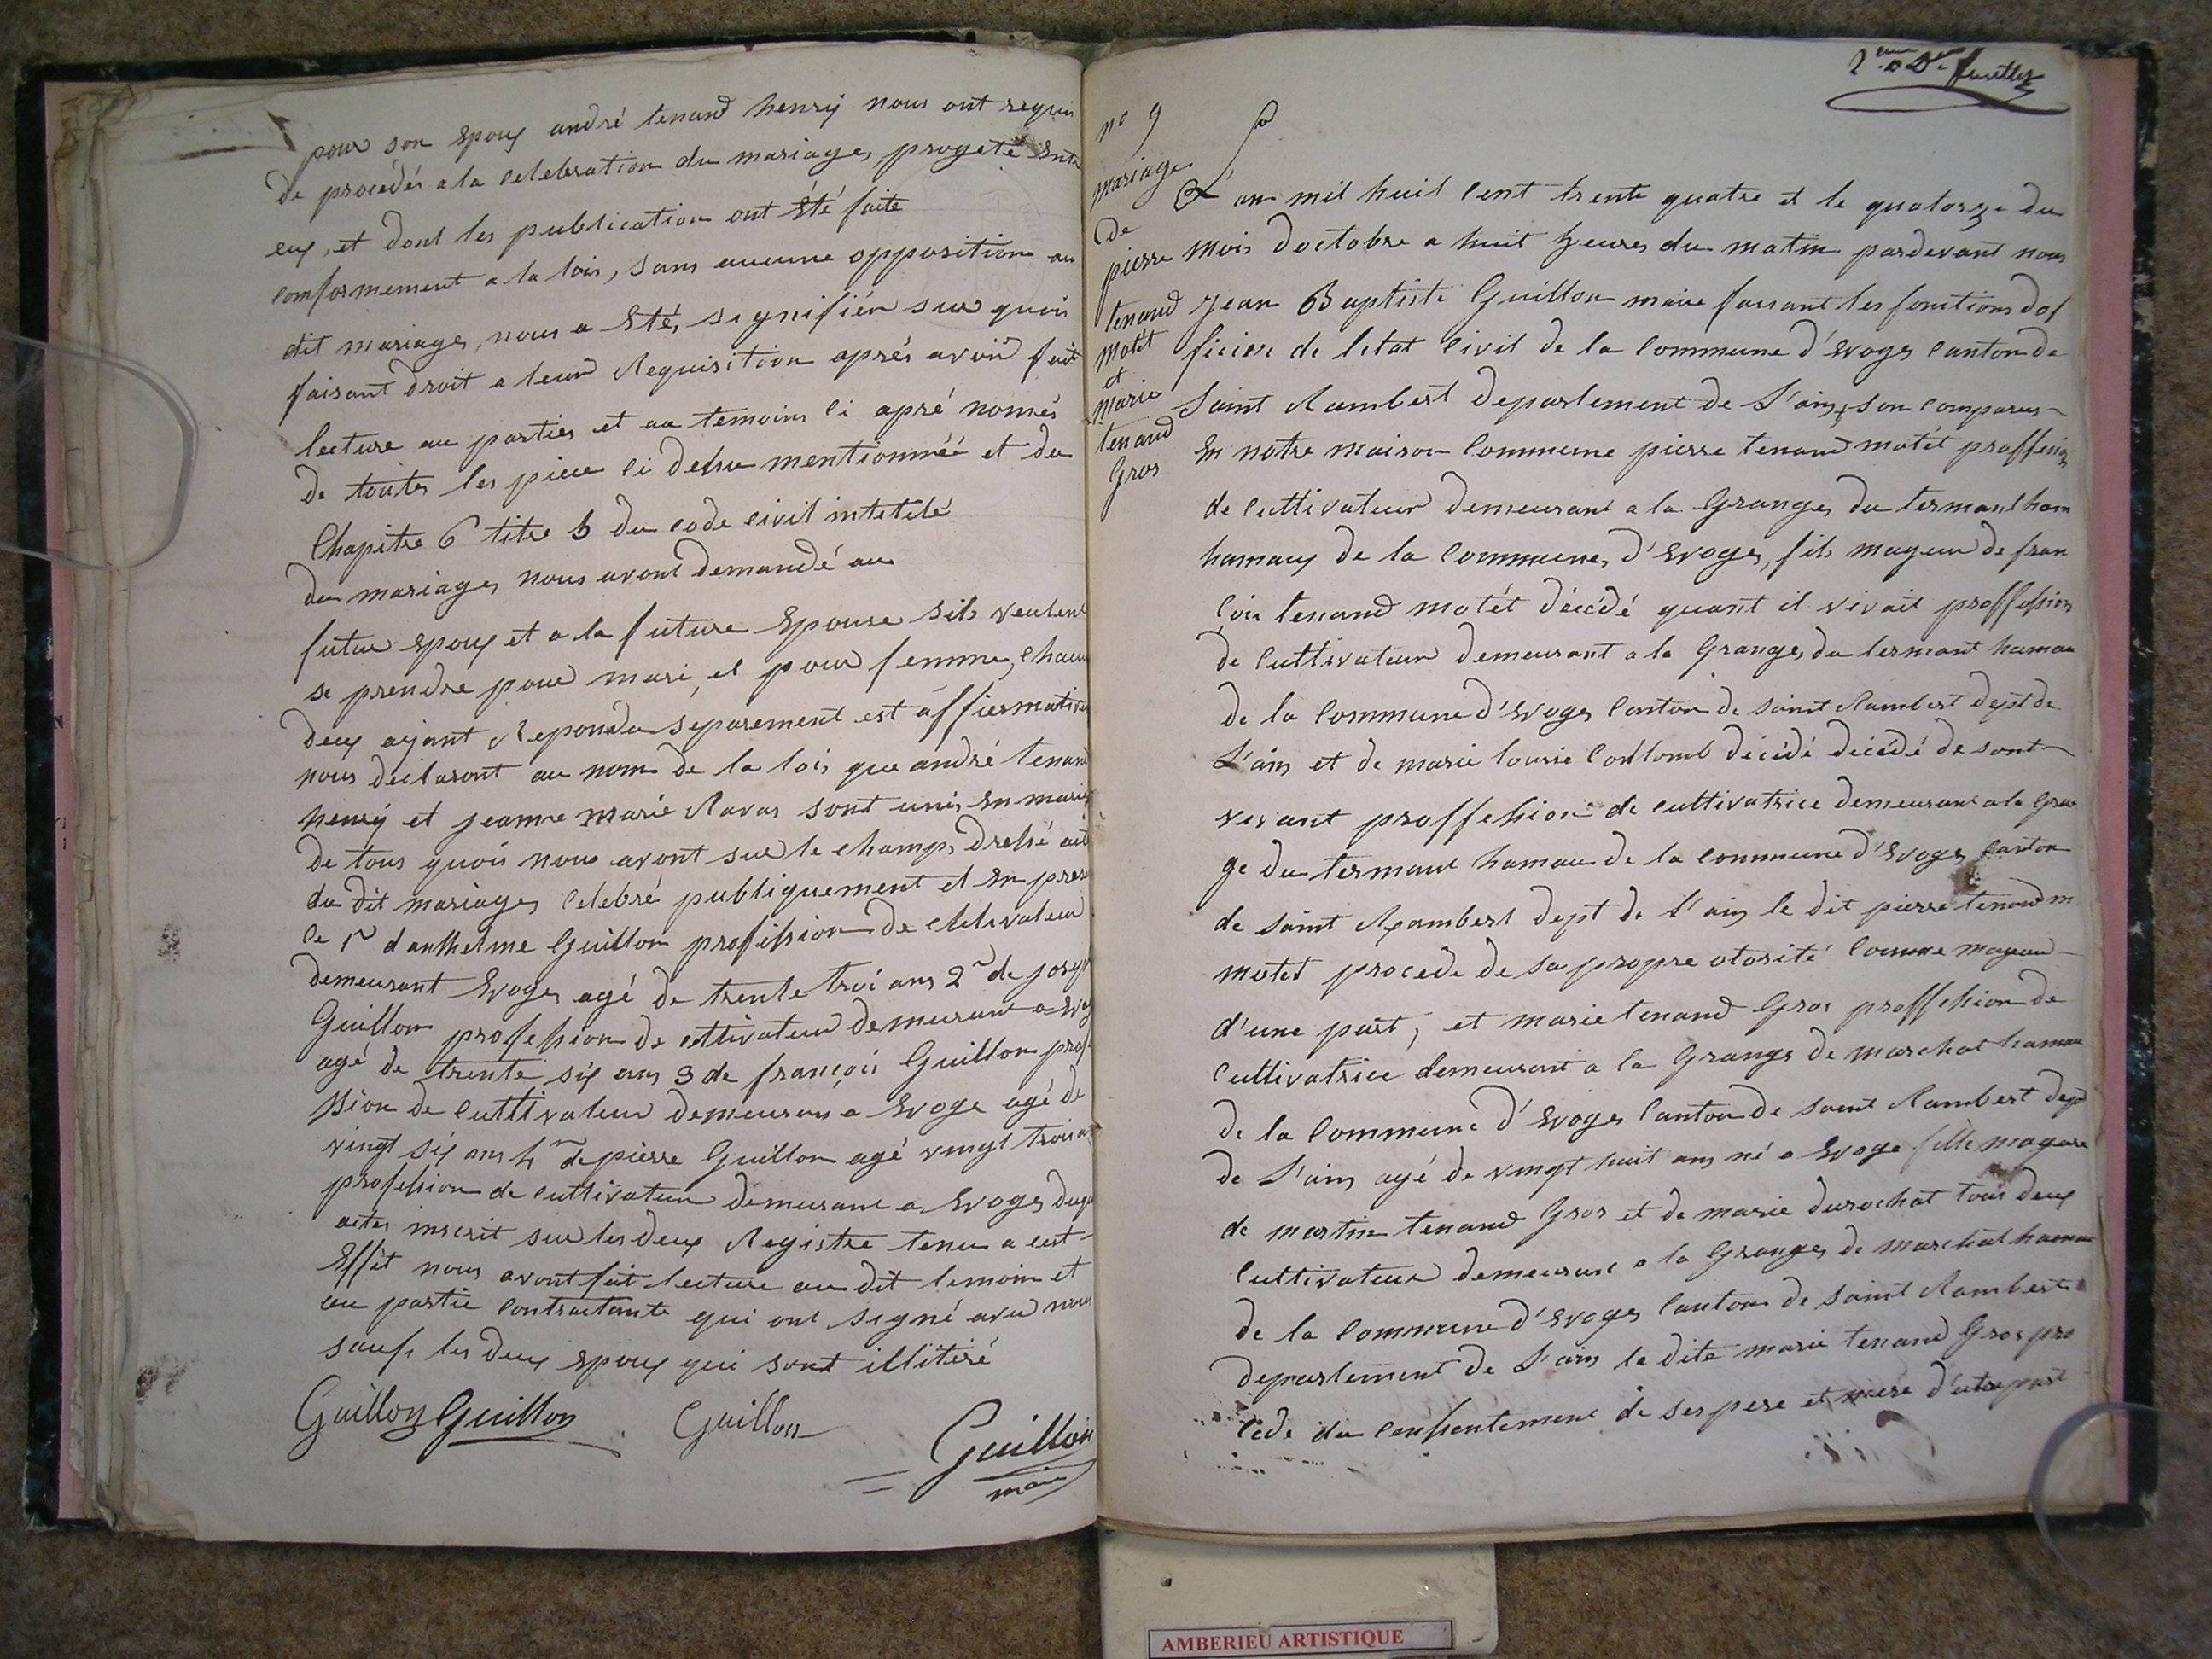 pour son Epoux andré tenand henry nous ont requis
de procédés a la Celebration du mariage, progeté Entre
eux, et dont les publication ont été faite
comformement a la lois, sans aucune opposition au
dit mariage, nous a Eté, signifiér sur quoi
faisant droit a leur Requisition aprés avoir fait
lecture au parties et au temoins Ci apré només
de toutes les piece Ci Dessu mentionnéé et du
Chapitre 6 titre 5 du code civil intetulé
du mariage, nous avont demandé au
futur Epoux et a la future Epouse sils veulent
se prendre pour mari, et pour femme, chacun
deux ayant Repondu séparement est affiermative
nous déclaront au nom de la lois, que andré tenand
henry et jeanne marie Ravas sont unis, En mariage
de tous quois nous avont sur le champs dressé act
du dit mariage, Celebré publiquement et En presen
Ce 1er danthelme Guillon profession de Cultivateur
demeurant Evoges agé de trente troi ans 2e de joseph
Guillon profession de cultivateur demeurant a Evog
agé de trente six ans 3 de françois Guillon prof
ssion de Cultivateur demeurant a Evoge agé de
vingt six ans 4e de pierre Guillon agé vingt trois an
profession de cultivateur demeurant a Evoges duqu
actes inscrit sur les deux Registre tenu a cest
Effét nous avont fait lecture au dit temoin et
au partie Contractante qui ont signé avec nous
sauf, les deux Epoux qui sont illitéré
Guillon Guillon Guillon
Guillon
maire
2eme Dr feuillet
no 9
mariage
de
pierre
tenand
motét
et
marie
tenand
Gros
L'an mil huit Cent trente quatre et le quatorze du
mois doctobre a huit heures du matin pardevant nous
Jean Baptiste Guillon maire faisant les fonctions dof
ficier de létat Civil de la Commune d'Evoges Canton de
Saint Rambert Departement de L'ain, son Comparus
En notre maison Commune pierre tenand motét proffession
de Cultivateur demeurant a la Grange, du termant ham
hamaux de la Commune, d'Evoges, fils mageur de fran
Çois tenand motét décédé quant il vivait proffession
de Cultivateur demeurant a la Grange, du termant hamau
de la Commune d'Evoges Canton de saint Rambert dept de
L'ain et de marie louise Coulomb décédé décédé de sont
vivant proffession de cultivatrice demeurant a la Gran
ge du termant hamau de la Commune d'Evoges Canton
de saint Rambert dept de l'ain le dit pierre tenand m
motet procede de sa propre otorité Comme mageur
d'une part, et marie tenand Gros proffession de
Cultivatrice demeurant a la Grange de marchat hamau
de la Commune d'Evoges Canton de saint Rambert dept
de L'ain agé de vingt huit ans né a Evoge fille mageure
de martin tenand Gros et de marie durochat tous deux
Cultivateur demeurant a la Grange, de marchat hamau
de la Commune d'Evoges Canton de saint Rambert
departement de L'ain la dite marie tenand Gros pro
Cede du Consentement de ses pere et mere d'autre part
AMBERIEU ARTISTIQUE